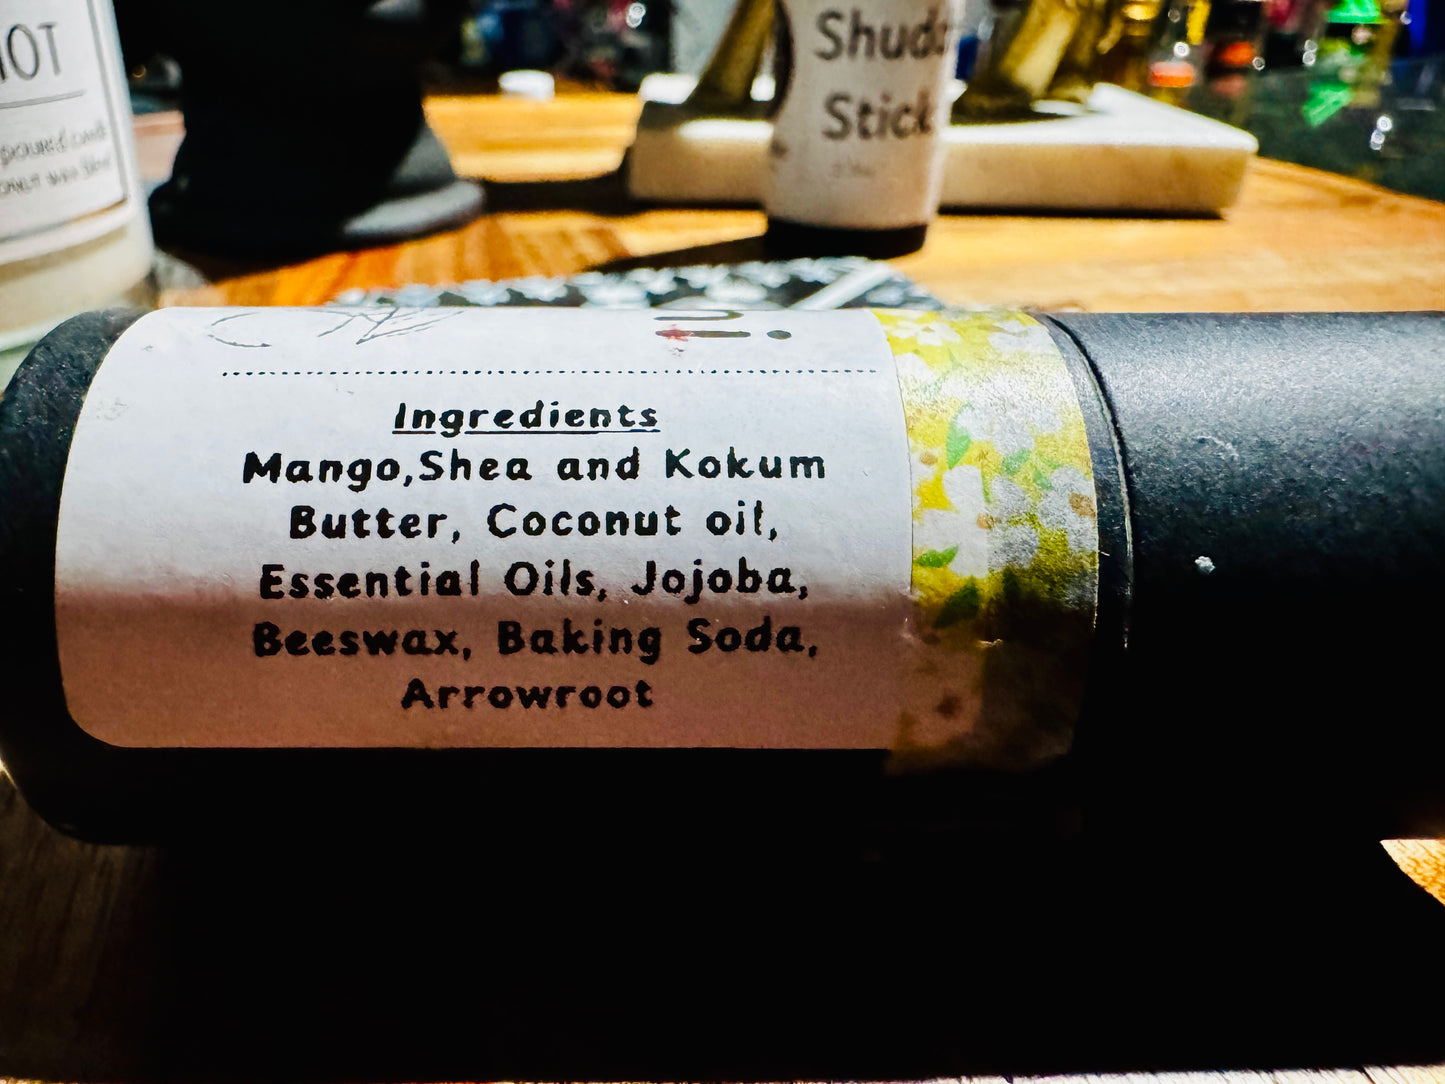 Stick
Ingredients
Mango,Shea and Kokum
Butter, Coconut oil,
Essential Oils, Jojoba,
Beeswax, Baking Soda,
Arrowroot